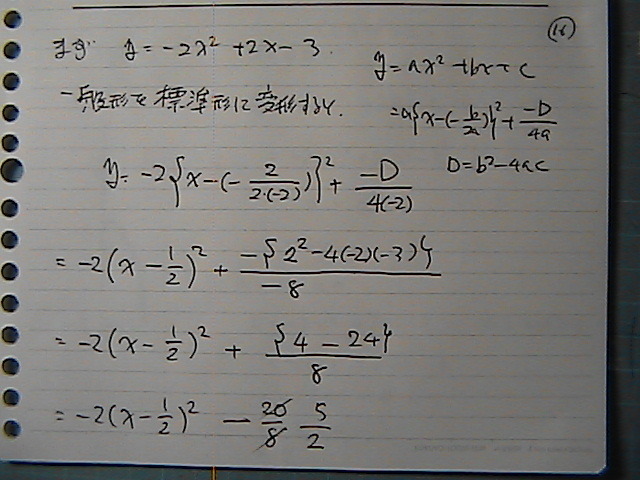 (16)
まず y = -2x² + 2x - 3
y = ax² + bx + c
一般形を標準形に変形すると.
= a{x-(-b/2a)}² + -D/4a
D = b² - 4ac
y = -2{x-(-2/2·(-2))}² + -D/4(-2)
= -2(x - 1/2)² + -{2² - 4(-2)(-3)}/-8
= -2(x - 1/2)² + {4 - 24}/8
= -2(x - 1/2)² - 20/8 5/2